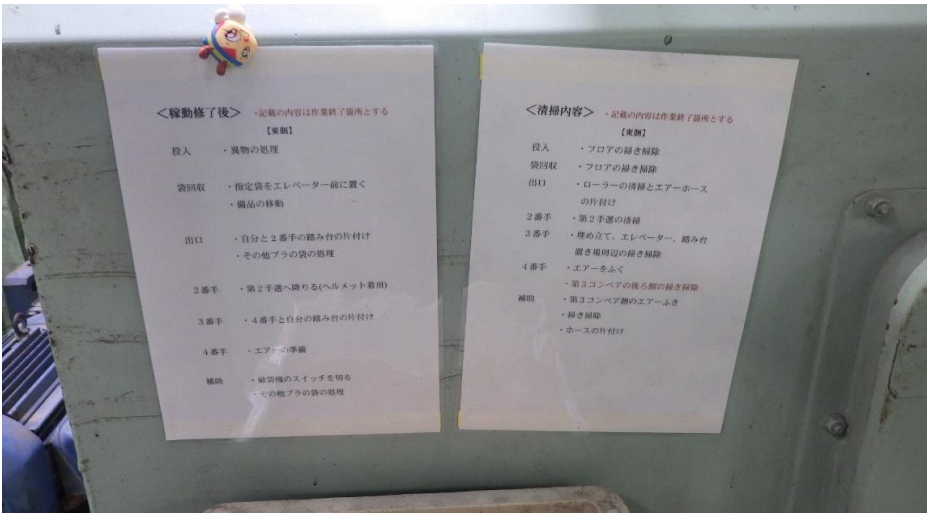 ＜稼動修了後＞ ・記載の内容は作業終了箇所とする
【東側】
投入 ・異物の処理
袋回収 ・指定袋をエレベーター前に置く
・備品の移動
出口 ・自分と２番手の踏み台の片付け
・その他プラの袋の処理
２番手 ・第２手選へ降りる(ヘルメット着用)
３番手 ・４番手と自分の踏み台の片付け
４番手 ・エアーの準備
補助 ・破袋機のスイッチを切る
・その他プラの袋の処理
＜清掃内容＞ ・記載の内容は作業終了箇所とする
【東側】
投入 ・フロアの掃き掃除
袋回収 ・フロアの掃き掃除
出口 ・ローラーの清掃とエアーホース
の片付け
２番手 ・第２手選の清掃
３番手 ・埋め立て、エレベーター、踏み台
置き場周辺の掃き掃除
４番手 ・エアーをふく
・第３コンベアの後ろ側の掃き掃除
補助 ・第３コンベア側のエアーふき
・掃き掃除
・ホースの片付け